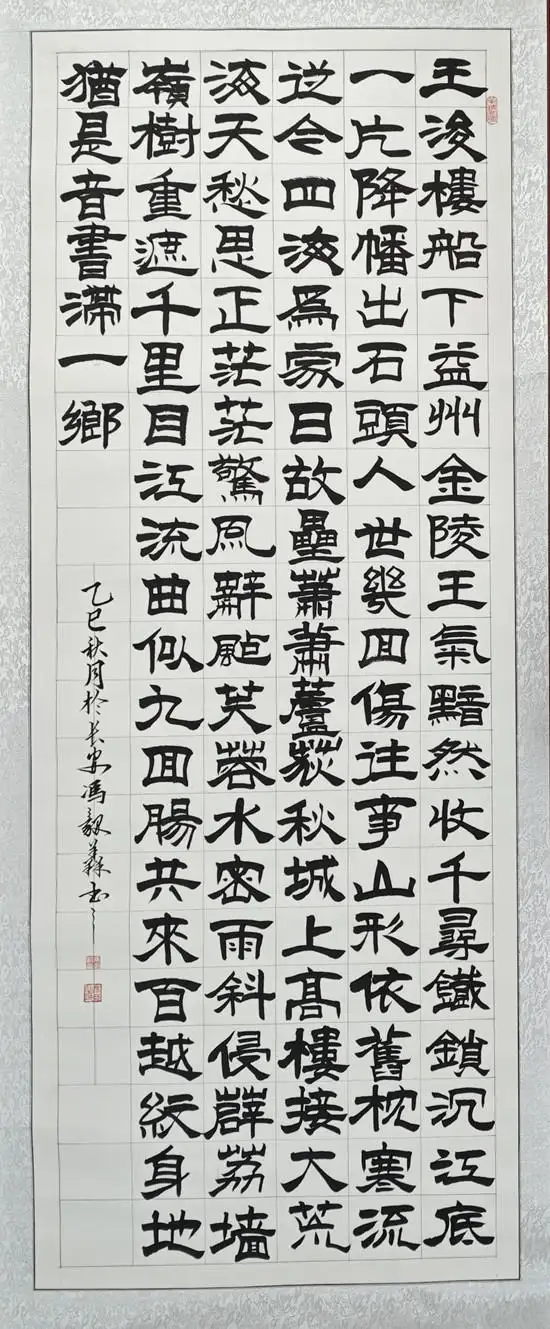 王浚樓船下益州金陵王氣黯然收千尋鐵鎖沉江底
一片降幡出石頭人世幾回傷往事山形依舊枕寒流
從今四海爲家日故壘蕭蕭蘆荻秋城上髙樓接大荒
海天愁思正茫茫驚風辭颭芙蓉水密雨斜侵薜荔墙
嶺樹重遮千里目江流曲似九回腸共來百越紋身地
猶是音書滯一鄉
乙巳秋月於长安冯毅森书